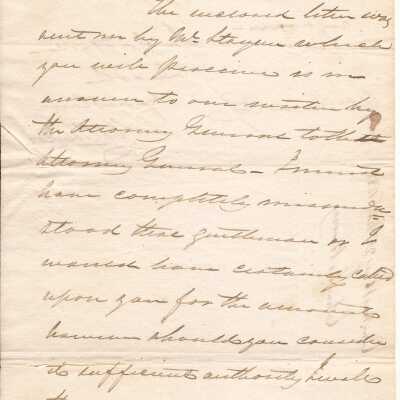 The inclosed letter was
sent me by Mr. which
you will perceive is in
answer to one written by
the Attorney General to the
Attorney General - I must
have completely misunder=
stood these gentleman or I
would have certainly called
upon you for the amount
however should you consider
it sufficient authority I will